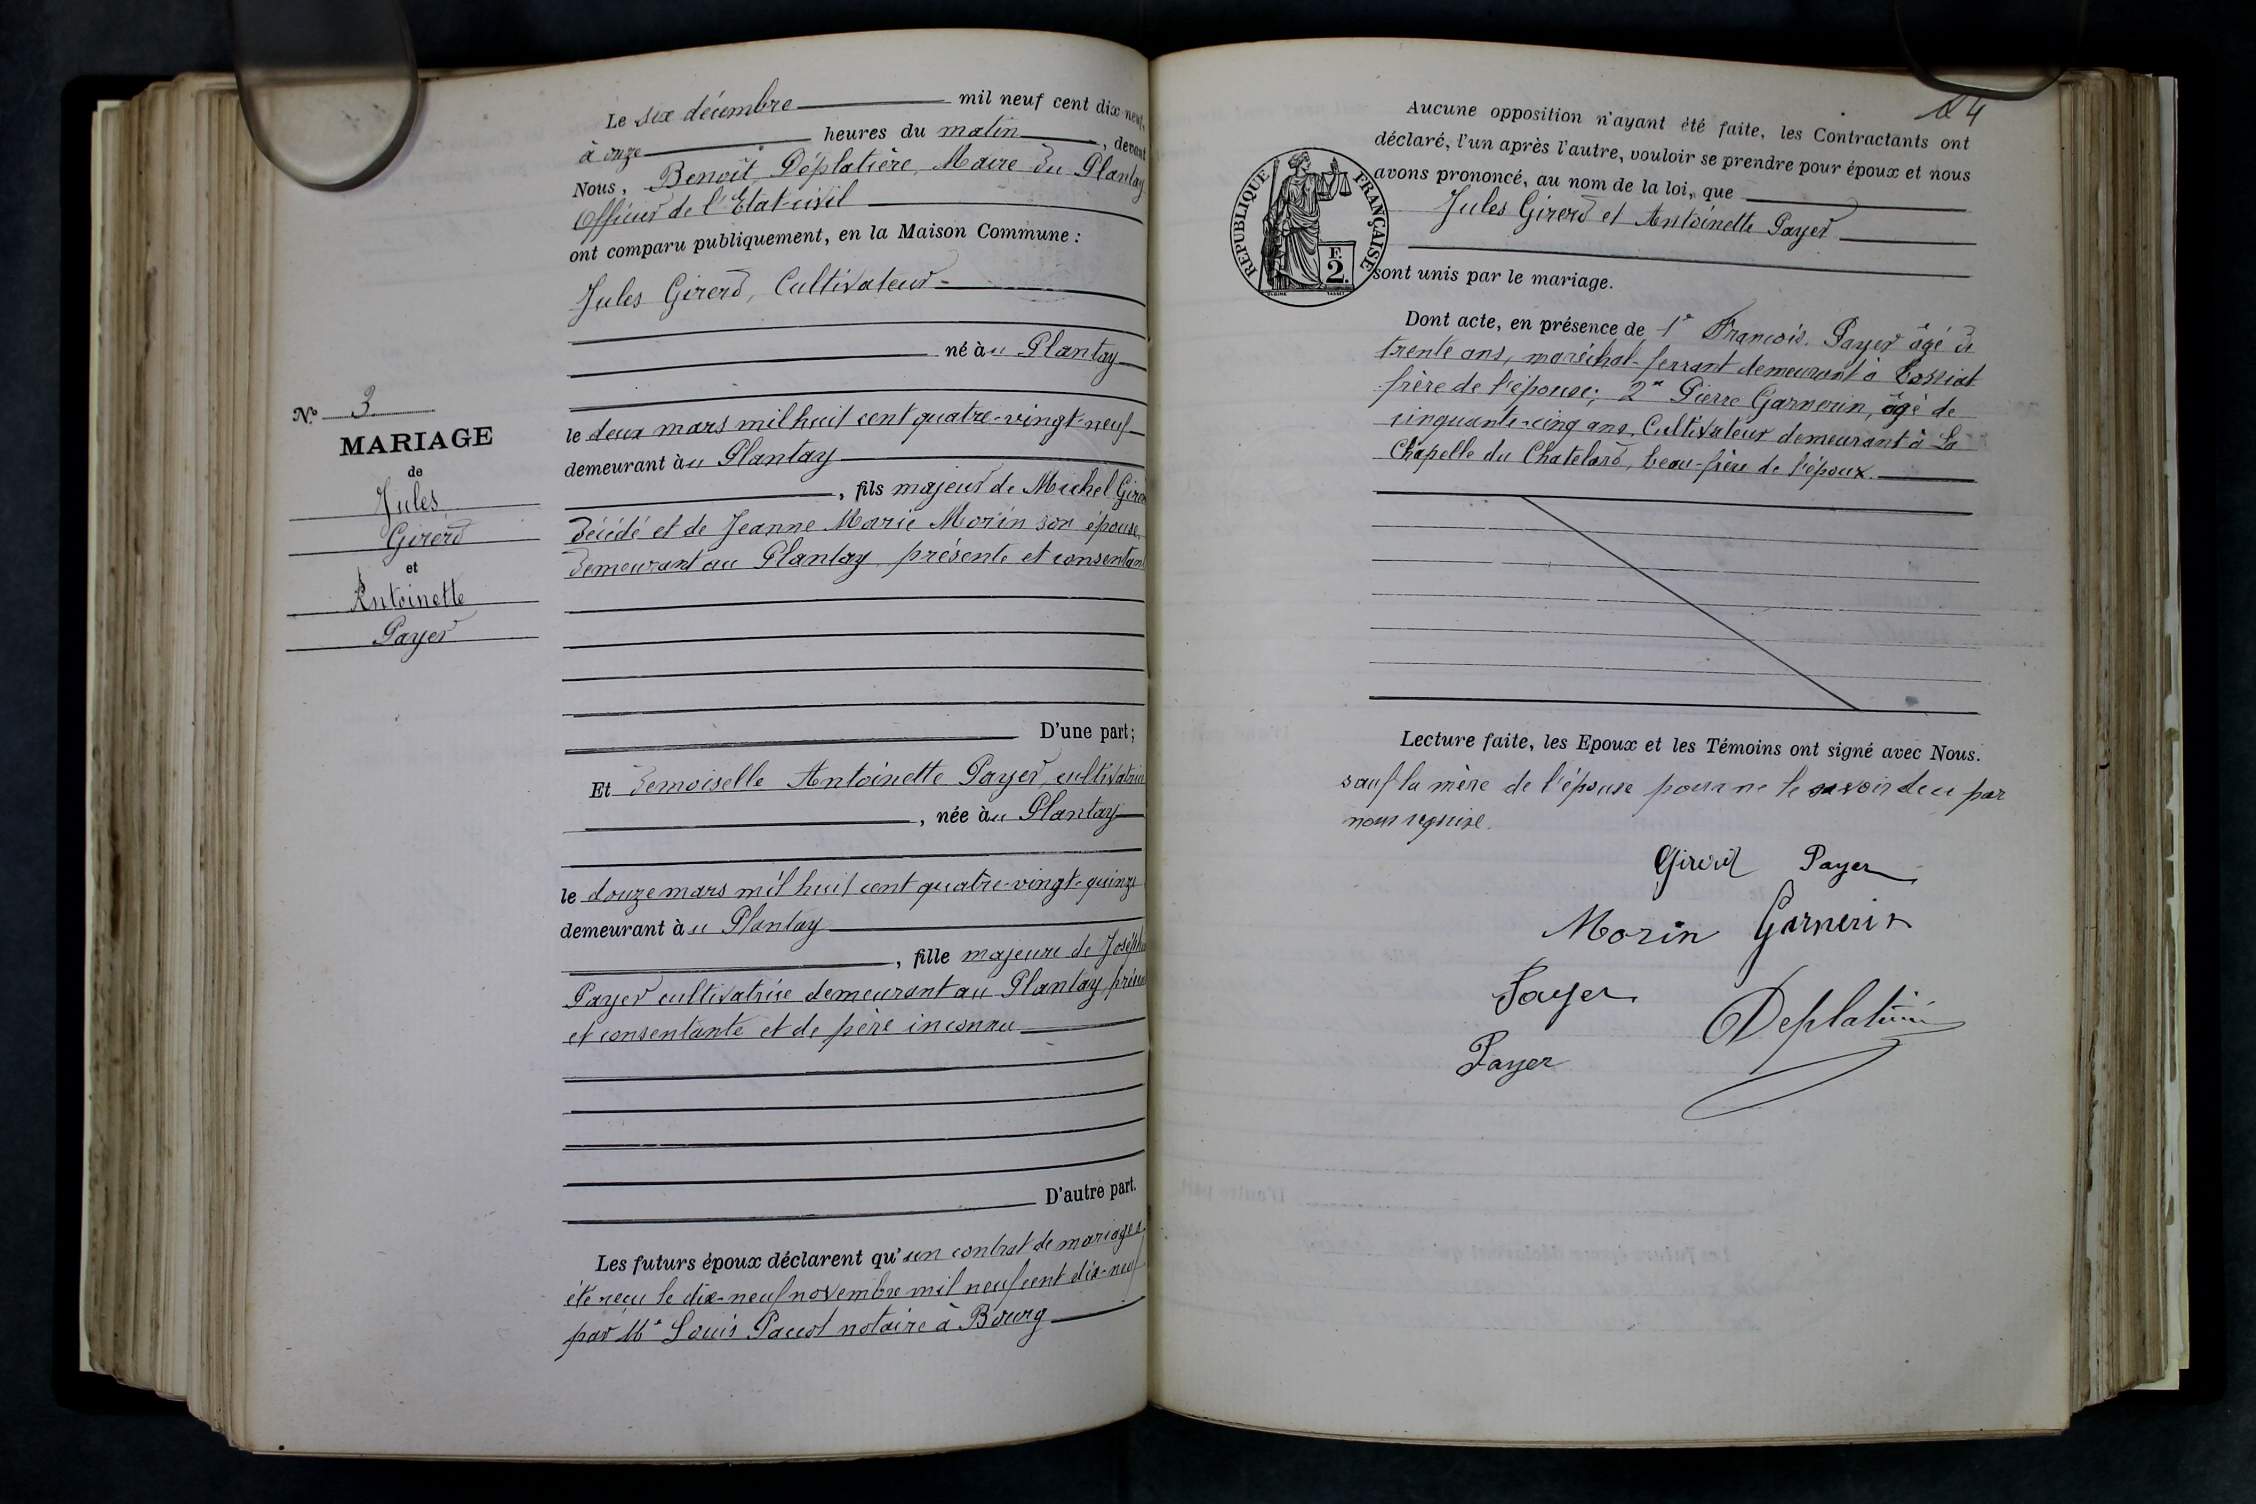 Le six décembre mil neuf cent dix-neuf,
à onze heures du matin, devant
Nous, Benoît Déplatière, Maire du Plantay
Officier de l'Etat-civil
ont comparu publiquement, en la Maison Commune :
Jules Girerd, Cultivateur
né àu Plantay
le deux mars mil huit cent quatre-vingt-neuf
demeurant àu Plantay
, fils majeur de Michel Girerd
décédé et de Jeanne Marie Morin son épouse
demeurant au Plantay présente et consentante
D'une part;
Et demoiselle Antoinette Payer, cultivatrice
, née àu Plantay
le douze mars mil huit cent quatre-vingt-quinze
demeurant àu Plantay
, fille majeure de Joséphte
Payer cultivatrice demeurant au Plantay présente
et consentante et de père inconnu
D'autre part.
Les futurs époux déclarent qu'un contrat de mariage a
été reçu le dix-neuf novembre mil neuf cent dix-neuf
par Me Louis Paccot notaire à Bourg
Nº 3
MARIAGE
de
Jules
Girerd
et
Antoinette
Payer
24
Aucune opposition n'ayant été faite, les Contractants ont
déclaré, l'un après l'autre, vouloir se prendre pour époux et nous
avons prononcé, au nom de la loi, que
Jules Girerd et Antoinette Payer
sont unis par le mariage.
RÉPUBLIQUE FRANÇAISE
F.
2.
Dont acte, en présence de 1° François Payer âgé de
trente ans, maréchal-ferrant demeurant à Tossiat
frère de l'épouse; 2° Pierre Garnerin, âgé de
cinquante-cinq ans, Cultivateur demeurant à La
Chapelle du Chatelard, beau-frère de l'époux.
Lecture faite, les Epoux et les Témoins ont signé avec Nous.
sauf la mère de l'épouse pour ne le savoir de ce par
nous requise.
Girerd Payer
Morin Garnerin
Payer
Deplatière
Payer